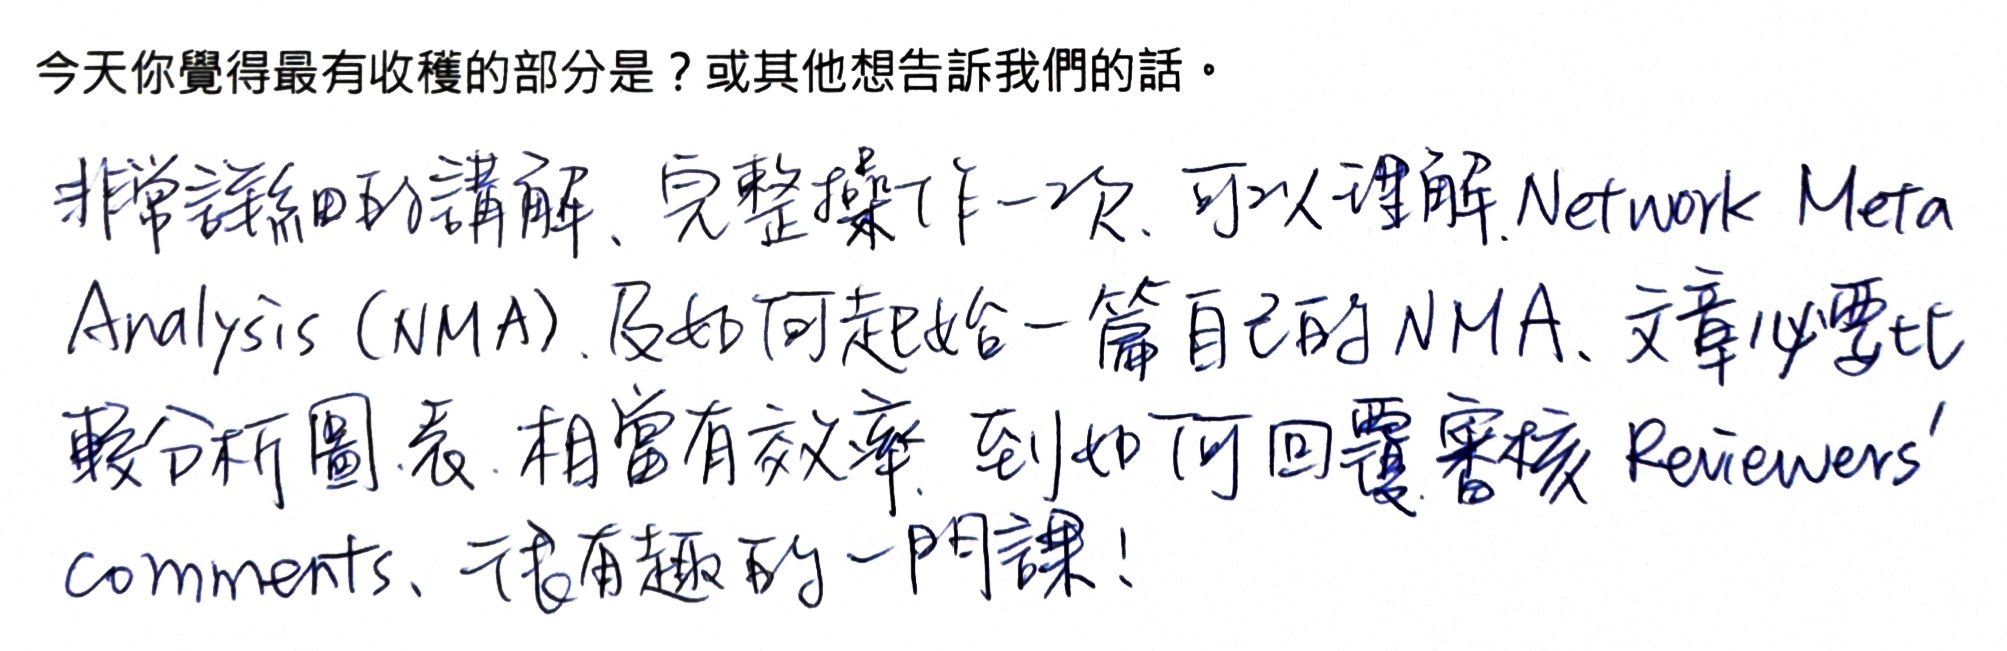 今天你覺得最有收穫的部分是？或其他想告訴我們的話。
非常詳細的講解、完整操作一次、可以理解.Network Meta
Analysis (NMA).及如何起始一篇自己的NMA、文章必要比
較分析圖.表.相當有效率.到如何回覆審核 Reviewers'
comments、很有趣的一門課！